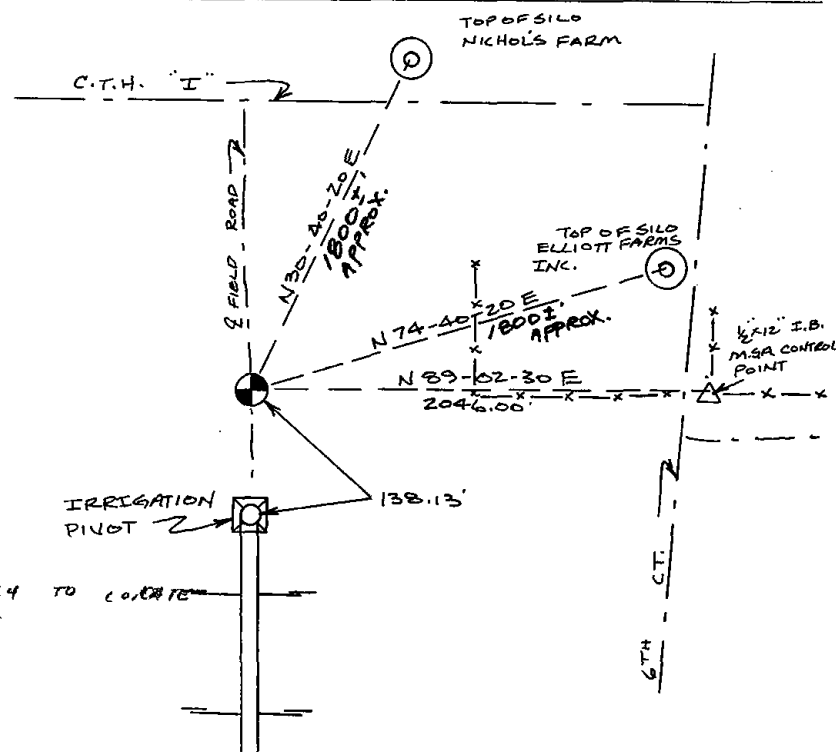 TOP OF SILO
NICHOL'S FARM
C.T.H. "I"
℄ FIELD ROAD
N 30-40-20 E
1800±
APPROX.
TOP OF SILO
ELLIOTT FARMS
INC.
N 74-40-20 E
1800±
APPROX.
1/2"x12" I.B.
M.S.A CONTROL
POINT
N 89-02-30 E
2046.00'
138.13'
IRRIGATION
PIVOT
TO
6TH CT.